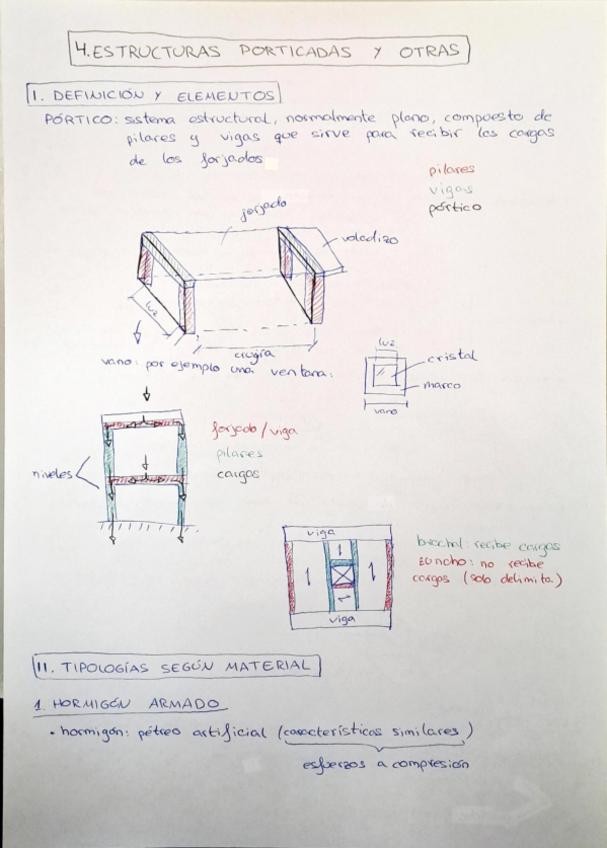 4. ESTRUCTURAS PORTICADAS Y OTRAS
I. DEFINICIÓN Y ELEMENTOS
PÓRTICO: sistema estructural, normalmente plano, compuesto de
pilares y vigas que sirve para recibir las cargas
de los forjados
pilares
vigas
pórtico
forjado
voladizo
luz
crugía
vano: por ejemplo una ventana:
luz
cristal
marco
vano
forjado/viga
pilares
cargas
niveles
viga
viga
brochal: recibe cargas
zuncho: no recibe
cargas (solo delimita)
II. TIPOLOGÍAS SEGÚN MATERIAL
1. HORMIGÓN ARMADO
• hormigón: pétreo artificial (características similares)
esfuerzos a compresión